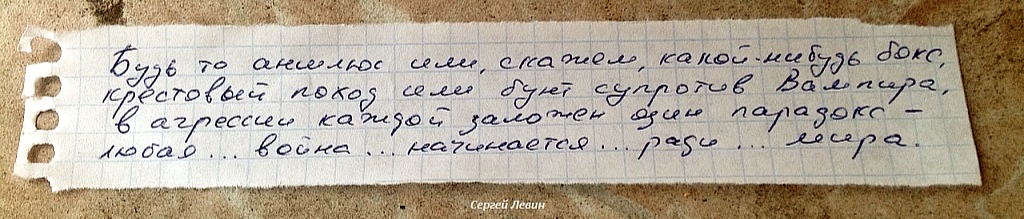 Будь то аншлюс или, скажем, какой-нибудь бокс,
крестовый поход или бунт супротив Вампира,
в агрессии каждой заложен один парадокс –
любая... война... начинается... ради... мира.
Сергей Левин